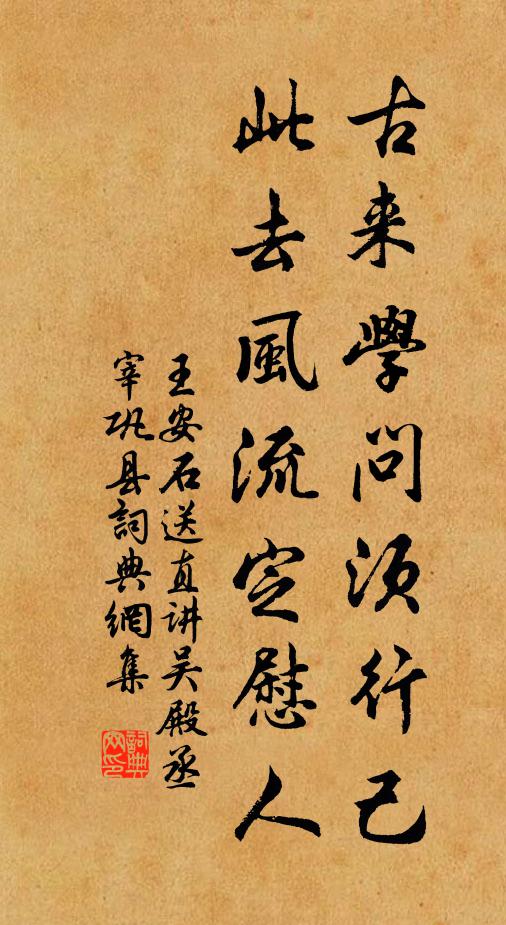 古来學問須行己
此去風流定慰人
王安石送直讲吴殿丞
宰巩县詞典網集
詞典網印